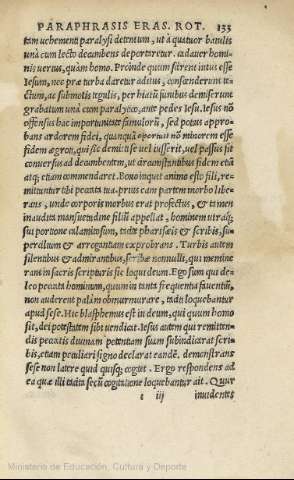 PARAPHRASIS ERAS. ROT. 133
tam uehementi paralysi detentum, ut à quatuor baiulis
unà cum lecto decumbens deportaretur, cadauer homi-
nis uerius, quàm homo. Proinde quum sitirent intus esse
Iesum, nec præ turba daretur aditus, conscenderunt te-
ctum, ac submotis tegulis, per hiatũ funibus demiserunt
grabatum unà cum paralytico, ante pedes Iesu. Iesus nõ
offensus hac importunitate famulorũ, sed potius appro-
bans ardorem fidei, quanquã nõ minorem esse
fidem ægroti, qui sic demitti se uel iusserit, uel passus sit
conuersus ad decumbentem, ut circunstantibus fidem etiã
atq; etiam commendaret. Bono inquit animo esto fili, re-
mittuntur tibi peccata tua. prius eam partem morbo libe-
rans, unde corporis morbus erat profectus, & ti men
inaudita mansuetudine filiũ appellat, hominem utraq;
sui portione calamitosum, tacitè pharisæis & scribis, su-
percilium & arrogantiam exprobrans. Turbis autem
silentibus & admirantibus, scribæ nonnulli, qui memine
rant in sacris scripturis sic loqui deum. Ego sum qui de-
leo peccata hominum, quum in tanta frequentia fauentiũ,
non auderent palàm obmurmurare, tacitè loquebantur
apud sese. Hic blasphemus est in deum, qui quum homo
sit, dei potestatem sibi uendicat. Iesus autem qui remitten-
dis peccatis diuinam potentiam suam subindicarat scri-
bis, etiam peculiari signo declarat eandẽ. demonstrans
sese non latere quid quisq; cogitet. Ergo respondens ad
ea quæ illi tacita secũ cogitatione loquebantur ait. Quur
iij inuidentes
Ministerio de Educación, Cultura y Deporte